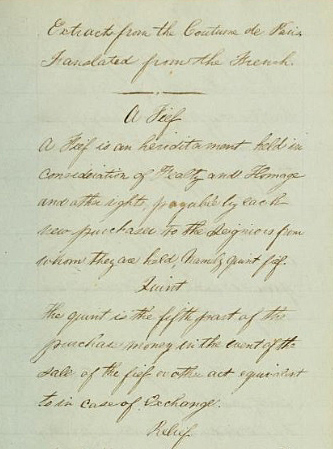 Extracts from the Coutume de Paris
Translated from the French.
A Fief
A Fief is an hereditament held in
consideration of Fealty and Homage
and other rights, payable by each
new purchaser to the Seigniors from
whom they are held, Namely quint fief.
Quint
The quint is the fifth part of the
purchase money in the event of the
sale of the fief or other act equivalent
to in case of Exchange.
Relief